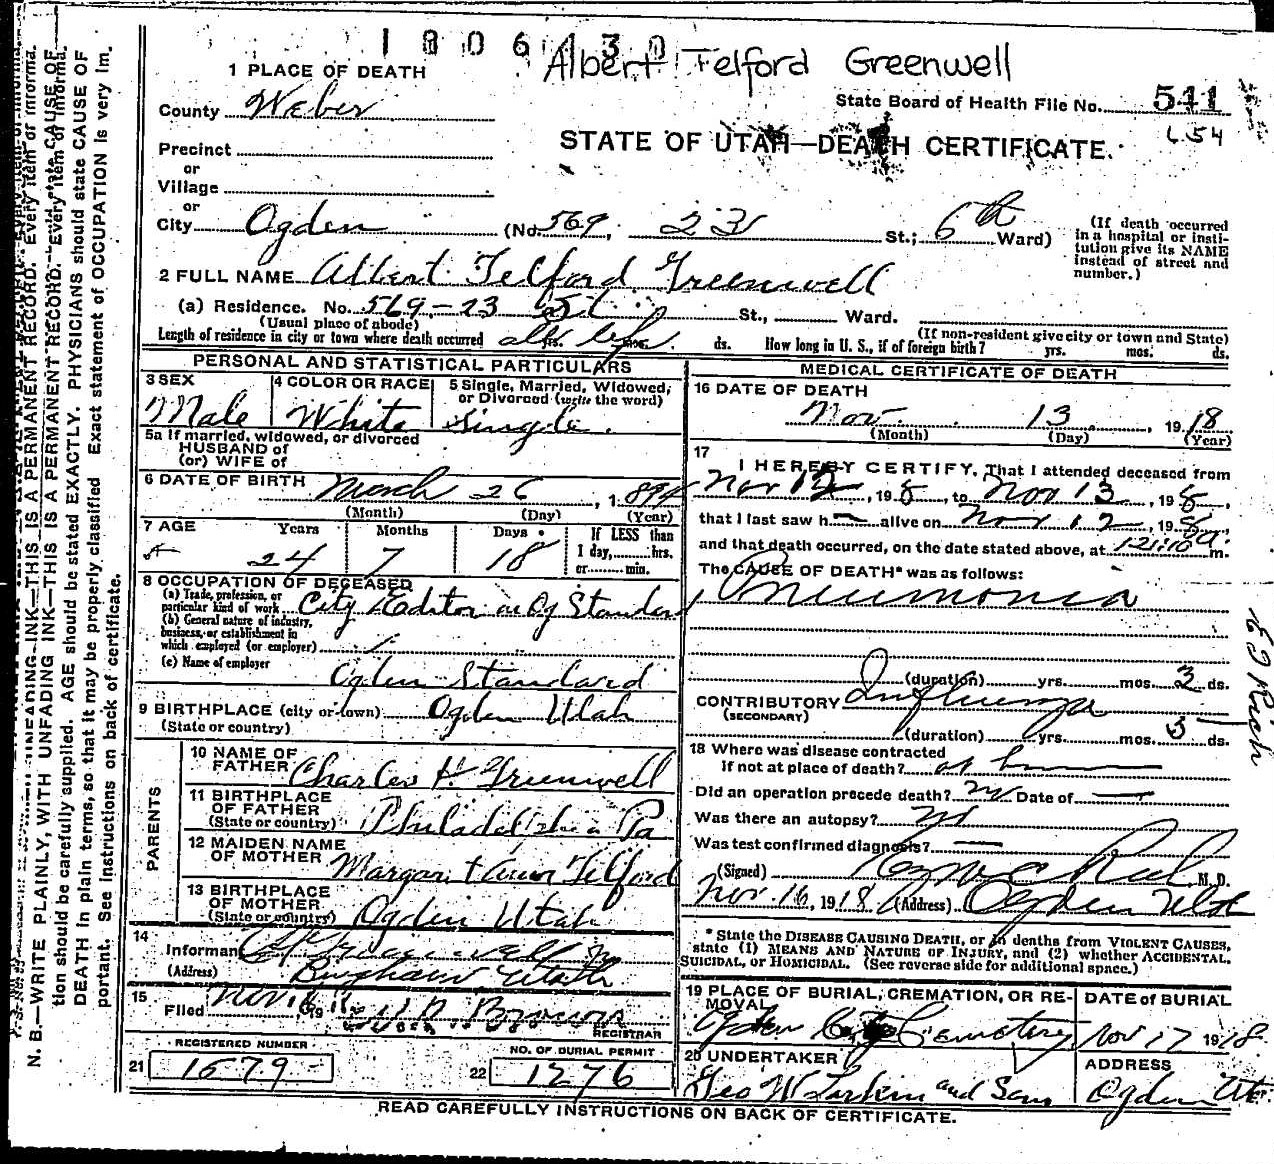 1806430
Albert Telford Greenwell
1 PLACE OF DEATH
County Weber
State Board of Health File No. 511
L 54
STATE OF UTAH—DEATH CERTIFICATE.
Precinct
or
Village
or
City Ogden (No. 569, 23 St.; 6th Ward)
(If death occurred in a hospital or institution give its NAME instead of street and number.)
2 FULL NAME Albert Telford Greenwell
(a) Residence. No. 569-23 St., Ward.
(Usual place of abode) (If non-resident give city or town and State)
Length of residence in city or town where death occurred all life yrs. mos. ds. How long in U. S., if of foreign birth? yrs. mos. ds.
PERSONAL AND STATISTICAL PARTICULARS
3 SEX Male
4 COLOR OR RACE White
5 Single, Married, Widowed, or Divorced (write the word) Single.
5a If married, widowed, or divorced
HUSBAND of
(or) WIFE of
6 DATE OF BIRTH March 26, 1894
(Month) (Day) (Year)
7 AGE Years 24 Months 7 Days 18 If LESS than 1 day, hrs. or min.
8 OCCUPATION OF DECEASED
(a) Trade, profession, or particular kind of work City Editor on Og Standard
(b) General nature of industry, business, or establishment in which employed (or employer)
(c) Name of employer Ogden Standard
9 BIRTHPLACE (city or town) Ogden Utah
(State or country)
PARENTS
10 NAME OF FATHER Charles H. Greenwell
11 BIRTHPLACE OF FATHER (State or country) Philadelphia Pa
12 MAIDEN NAME OF MOTHER Margaret Ann Telford
13 BIRTHPLACE OF MOTHER (State or country) Ogden Utah
14 Informant Greenwell Jr
(Address) Bingham, Utah
15 Filed Nov 16 1918 Brown
REGISTRAR
REGISTERED NUMBER
21 1679
NO. OF BURIAL PERMIT
22 1276
MEDICAL CERTIFICATE OF DEATH
16 DATE OF DEATH
Nov. 13, 1918
(Month) (Day) (Year)
17 I HEREBY CERTIFY, That I attended deceased from
Nov 12, 198, to Nov 13, 198,
that I last saw h— alive on Nov 12, 198,
and that death occurred, on the date stated above, at 12:10 a m.
The CAUSE OF DEATH* was as follows:
Pneumonia
(duration) yrs. mos. 3 ds.
CONTRIBUTORY Influenza
(SECONDARY)
(duration) yrs. mos. 5 ds.
18 Where was disease contracted
if not at place of death? at
Did an operation precede death? no Date of —
Was there an autopsy? no
Was test confirmed diagnosis? —
(Signed) Rich M. D.
Nov. 16, 1918 (Address) Ogden Utah
* State the DISEASE CAUSING DEATH, or in deaths from VIOLENT CAUSES, state (1) MEANS AND NATURE OF INJURY, and (2) whether ACCIDENTAL, SUICIDAL, or HOMICIDAL. (See reverse side for additional space.)
19 PLACE OF BURIAL, CREMATION, OR REMOVAL Ogden City Cemetery
DATE of BURIAL Nov 17 1918
20 UNDERTAKER Geo W Larkin and Sons
ADDRESS Ogden Ut.
READ CAREFULLY INSTRUCTIONS ON BACK OF CERTIFICATE.
N. B.—WRITE PLAINLY, WITH UNFADING INK—THIS IS A PERMANENT RECORD. Every item of information should be carefully supplied. AGE should be stated EXACTLY. PHYSICIANS should state CAUSE OF DEATH in plain terms, so that it may be properly classified. Exact statement of OCCUPATION is very important. See instructions on back of certificate.
Rich